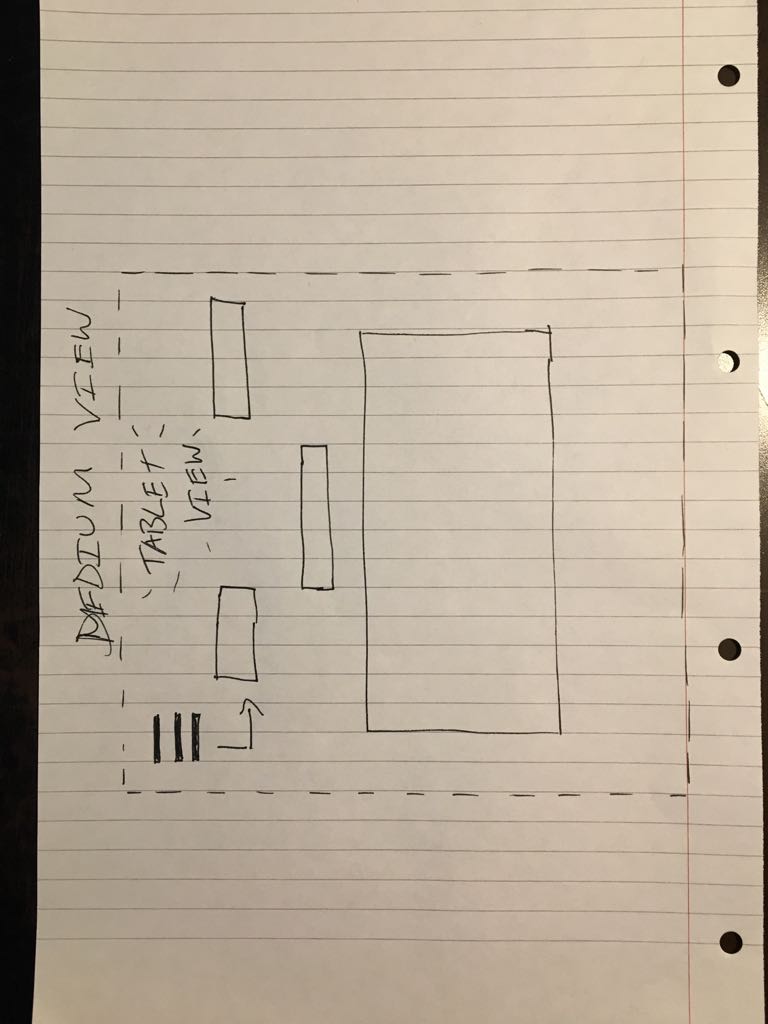 MEDIUM VIEW
TABLET
VIEW